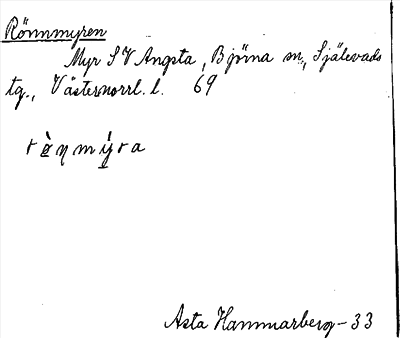 Rönnmyren
Myr SV Angsta, Björna sn, Själevads
tg., Västernorrl. l. 69
rø̀nmýra
Asta Hammarberg - 33